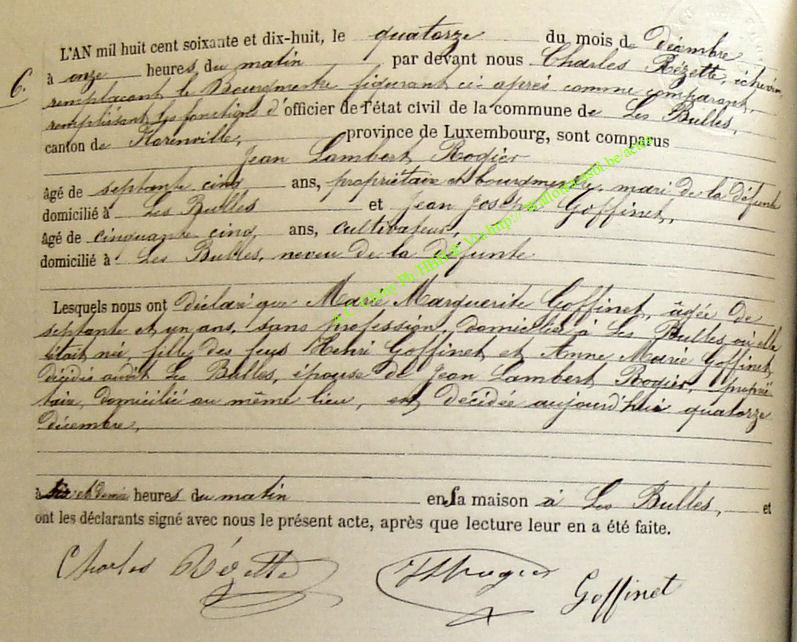 6.
L'AN mil huit cent soixante et dix-huit, le quatorze du mois de décembre
à onze heures du matin par devant nous Charles Rézette, échevin
remplaçant le Bourgmestre figurant ci-après comme comparant,
remplissant les fonctions d'officier de l'état civil de la commune de Les Bulles,
canton de Florenville, province de Luxembourg, sont comparus
Jean Lambert Rogier
âgé de septante cinq ans, propriétaire et bourgmestre, mari de la défunte
domicilié à Les Bulles et Jean Joseph Goffinet,
âgé de cinquante cinq ans, cultivateur,
domicilié à Les Bulles, neveu de la défunte
Lesquels nous ont déclaré que Marie Marguerite Goffinet, âgée de
septante et un ans, sans profession, domiciliée à Les Bulles, où elle
était née, fille des feus Henri Goffinet et Anne Marie Goffinet,
décédés audit Les Bulles, épouse de Jean Lambert Rogier, proprié
taire, domicilié au même lieu, est décédée aujourd'hui quatorze
décembre,
à et demie heures du matin en sa maison à Les Bulles, et
ont les déclarants signé avec nous le présent acte, après que lecture leur en a été faite.
Charles Rézette
Rogier
Goffinet